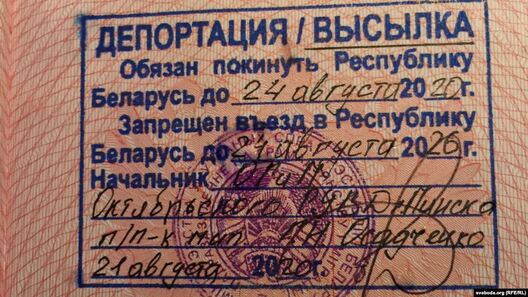 ДЕПОРТАЦИЯ / ВЫСЫЛКА
Обязан покинуть Республику
Беларусь до 24 августа 2020г.
Запрещен въезд в Республику
Беларусь до 24 августа 2026г.
Начальник
Октябрьского РУВД г. Минска
п/п-к мил.
21 августа 2020г.
svaboda.org (RFE/RL)